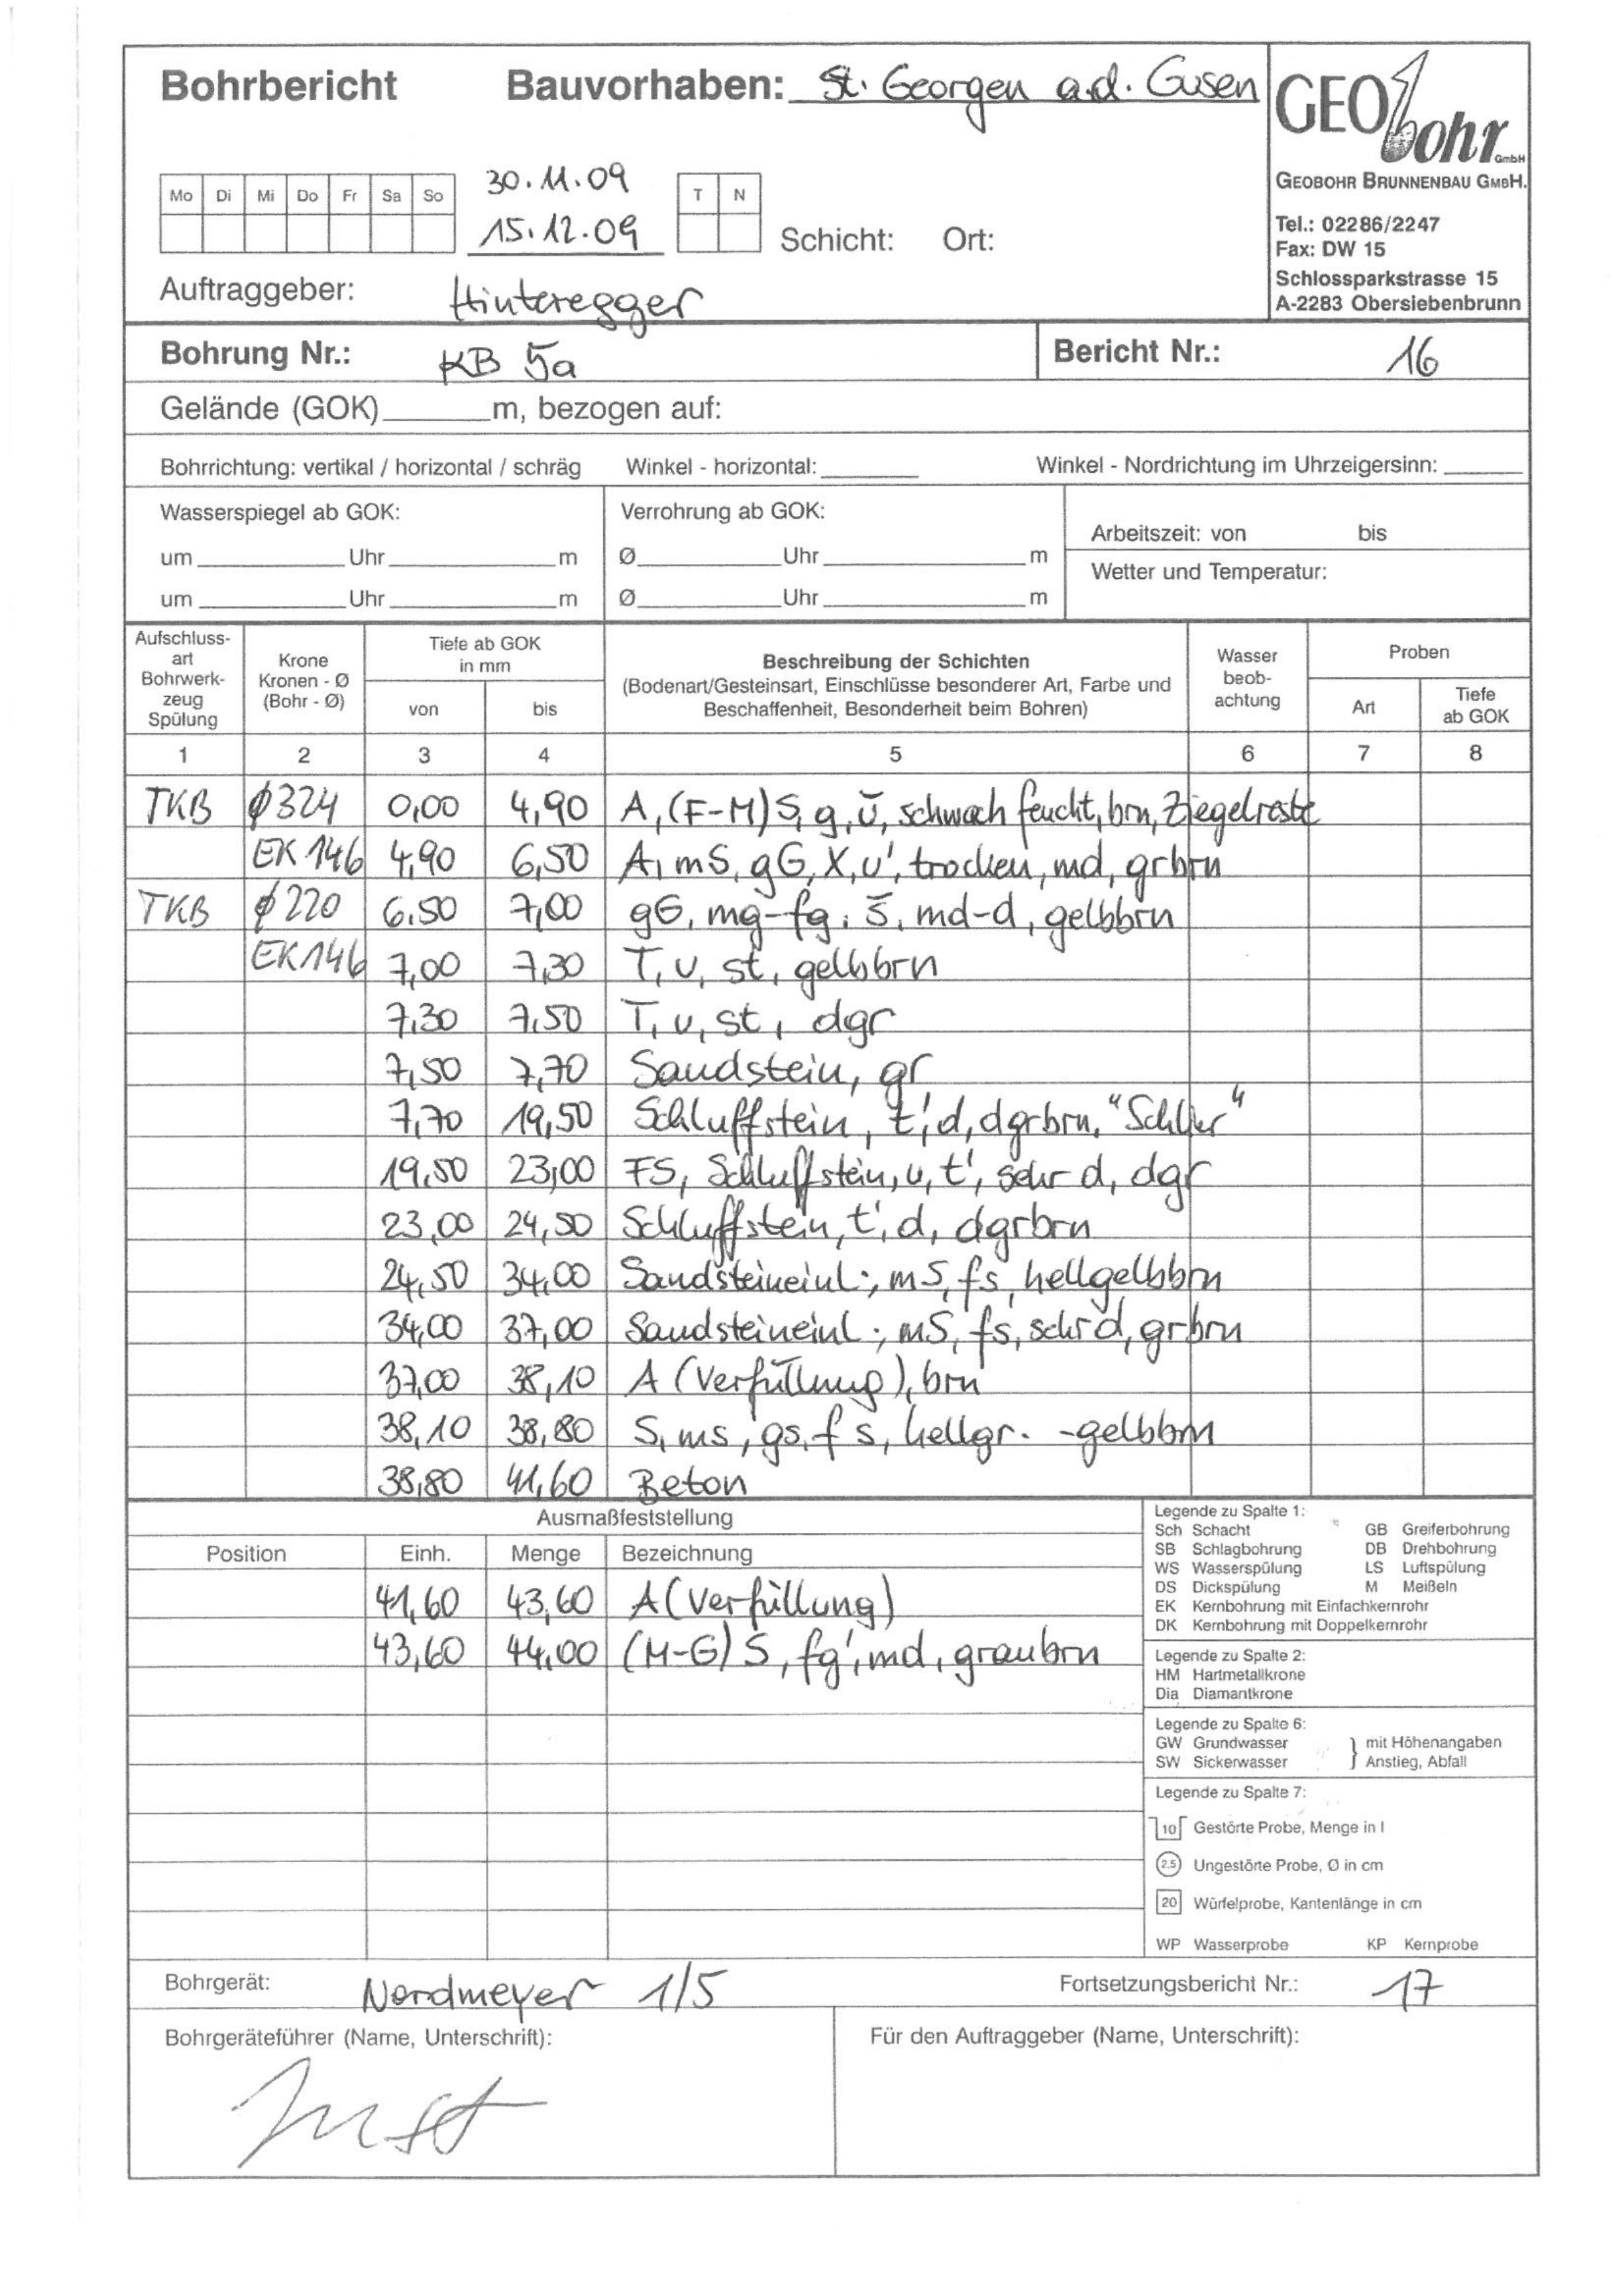 Bohrbericht Bauvorhaben: St. Georgen a.d. Gusen
GEObohr GmbH
GEOBOHR BRUNNENBAU GMBH.
Tel.: 02286/2247
Fax: DW 15
Schlossparkstrasse 15
A-2283 Obersiebenbrunn
Mo Di Mi Do Fr Sa So 30.11.09 T N
15.12.09 Schicht: Ort:
Auftraggeber: Hinteregger
Bohrung Nr.: KB 5a Bericht Nr.: 16
Gelände (GOK)______m, bezogen auf:
Bohrrichtung: vertikal / horizontal / schräg Winkel - horizontal:______ Winkel - Nordrichtung im Uhrzeigersinn:______
Wasserspiegel ab GOK: Verrohrung ab GOK: Arbeitszeit: von bis
um______Uhr______m Ø______Uhr______m Wetter und Temperatur:
um______Uhr______m Ø______Uhr______m
Aufschluss-
art
Bohrwerk-
zeug
Spülung
Krone
Kronen - Ø
(Bohr - Ø)
Tiefe ab GOK
in mm
von bis
Beschreibung der Schichten
(Bodenart/Gesteinsart, Einschlüsse besonderer Art, Farbe und
Beschaffenheit, Besonderheit beim Bohren)
Wasser
beob-
achtung
Proben
Art Tiefe
ab GOK
1 2 3 4 5 6 7 8
TKB ø324 0,00 4,90 A, (F-M) S, g, ū, schwach feucht, brn, Ziegelreste
EK 146 4,90 6,50 A, mS, gG, X, u', trocken, md, grbrn
TKB ø220 6.50 7,00 gG, mg-fg, s̄, md-d, gelbbrn
EK146 7,00 7,30 T, u, st, gelbbrn
7,30 7,50 T, u, st, dgr
7,50 7,70 Sandstein, gr
7,70 19,50 Schluffstein, t', d, dgrbrn, "Schlier"
19,50 23,00 FS, Schluffstein, u, t', sehr d, dgr
23,00 24,50 Schluffstein, t', d, dgrbrn
24,50 34,00 Sandsteineinl., mS, fs, hellgelbbrn
34,00 37,00 Sandsteineinl., mS, fs, sehr d, grbrn
37,00 38,10 A (Verfüllung), brn
38,10 38,80 S, ms, gs, fs, hellgr. -gelbbrn
38,80 41,60 Beton
Ausmaßfeststellung
Position Einh. Menge Bezeichnung
41,60 43,60 A (Verfüllung)
43,60 44,00 (M-G) S, fg', md, graubrn
Legende zu Spalte 1:
Sch Schacht GB Greiferbohrung
SB Schlagbohrung DB Drehbohrung
WS Wasserspülung LS Luftspülung
DS Dickspülung M Meißeln
EK Kernbohrung mit Einfachkernrohr
DK Kernbohrung mit Doppelkernrohr
Legende zu Spalte 2:
HM Hartmetallkrone
Dia Diamantkrone
Legende zu Spalte 6:
GW Grundwasser } mit Höhenangaben
SW Sickerwasser Anstieg, Abfall
Legende zu Spalte 7:
10 Gestörte Probe, Menge in l
2.5 Ungestörte Probe, Ø in cm
20 Würfelprobe, Kantenlänge in cm
WP Wasserprobe KP Kernprobe
Bohrgerät: Nordmeyer 1/5 Fortsetzungsbericht Nr.: 17
Bohrgeräteführer (Name, Unterschrift): Für den Auftraggeber (Name, Unterschrift):